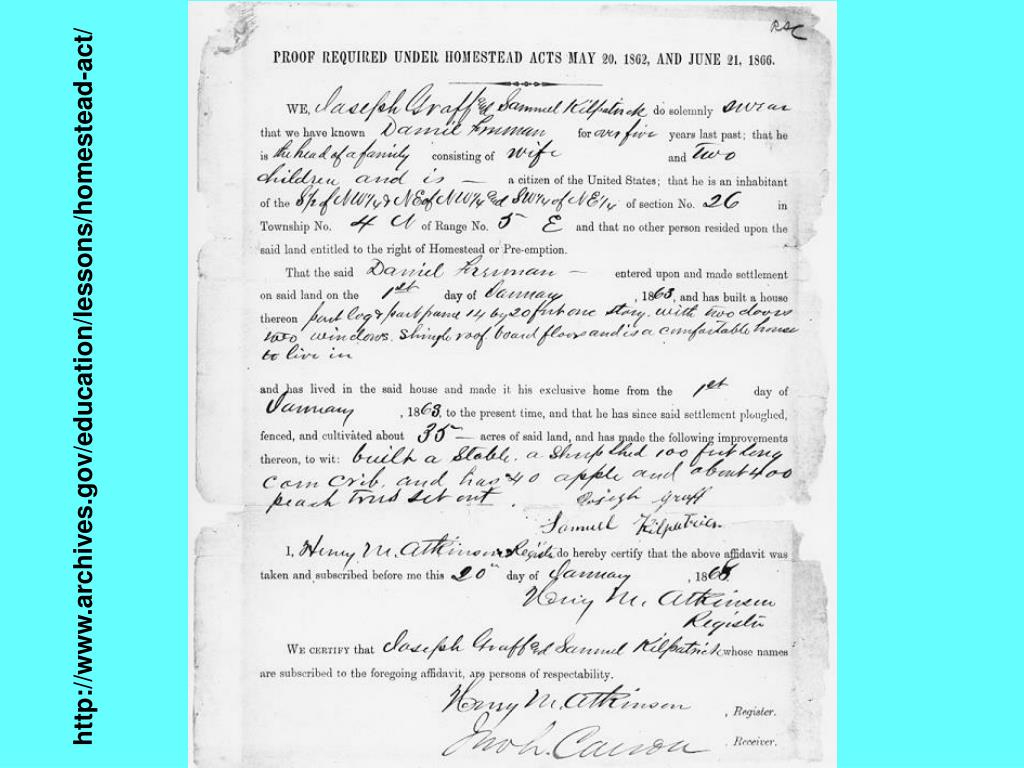 http://www.archives.gov/education/lessons/homestead-act/
PROOF REQUIRED UNDER HOMESTEAD ACTS MAY 20, 1862, AND JUNE 21, 1866.
WE, Joseph Graff & Samuel Kilpatrick do solemnly swear
that we have known Daniel Freeman for over five years last past; that he
is the head of a family consisting of wife and two
children and is — a citizen of the United States; that he is an inhabitant
of the S½ of NW¼ & NE of NW¼ & SW¼ of NE¼ of section No. 26 in
Township No. 4 N of Range No. 5 E and that no other person resided upon the
said land entitled to the right of Homestead or Pre-emption.
That the said Daniel Freeman — entered upon and made settlement
on said land on the 1st day of January, 1863, and has built a house
thereon part log & part frame 14 by 20 feet one story. with two doors
two windows. shingle roof board floors and is a comfortable house
to live in
and has lived in the said house and made it his exclusive home from the 1st day of
January, 1863, to the present time, and that he has since said settlement ploughed,
fenced, and cultivated about 35 — acres of said land, and has made the following improvements
thereon, to wit: built a stable. a sheep shed 100 feet long
corn crib. and has 40 apple and about 400
peach trees set out.
Joseph Graff
Samuel Kilpatrick
I, Henry M. Atkinson Register do hereby certify that the above affidavit was
taken and subscribed before me this 20th day of January, 1868.
Henry M. Atkinson
Register
WE CERTIFY that Joseph Graff & Samuel Kilpatrick whose names
are subscribed to the foregoing affidavit, are persons of respectability.
Henry M. Atkinson, Register.
Receiver.